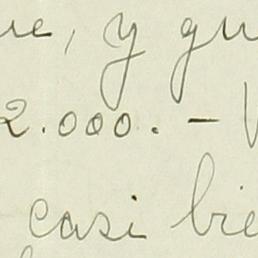 ue, y qu
2.000. - V
casi bie